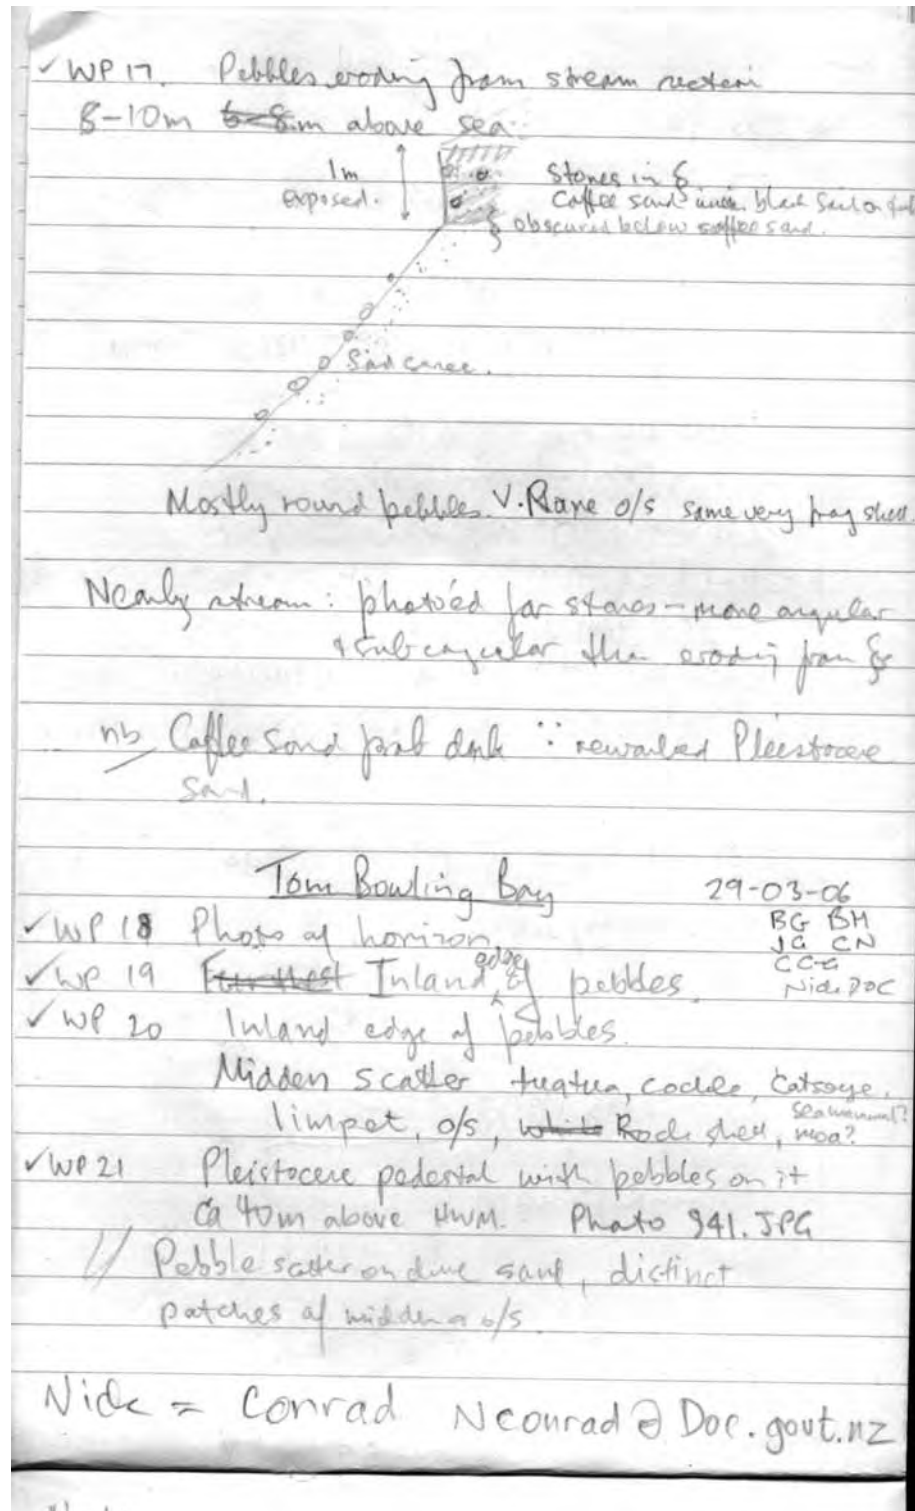 ✓ WP 17. Pebbles eroding from stream section
8-10m 6-8m above sea.
1m
exposed.
Stones in &
Coffee sand under black sand on
obscured below coffee sand.
Sand scree.
Mostly round pebbles. V. Rare o/s some very frag shell
Nearby stream: photo'ed for stones - more angular
+ subangular than eroding from &
nb Coffee sand prob dark ∵ reworked Pleistocene
sand.
Tom Bowling Bay 29-03-06
✓ WP 18 Photo of horizon. BG BH
JG CN
✓ WP 19 Furthest Inland edge of pebbles. CCG
Nick DOC
✓ WP 20 Inland edge of pebbles.
Midden scatter tuatua, cockle, Catseye,
limpet, o/s, white Rock shell, sea mammal?
moa?
✓ WP 21 Pleistocene pedestal with pebbles on it
Ca 40m above HWM. Photo 941.JPG
// Pebble scatter on dune sand, distinct
patches of midden o/s
Nick = Conrad Nconrad@Doc.govt.nz